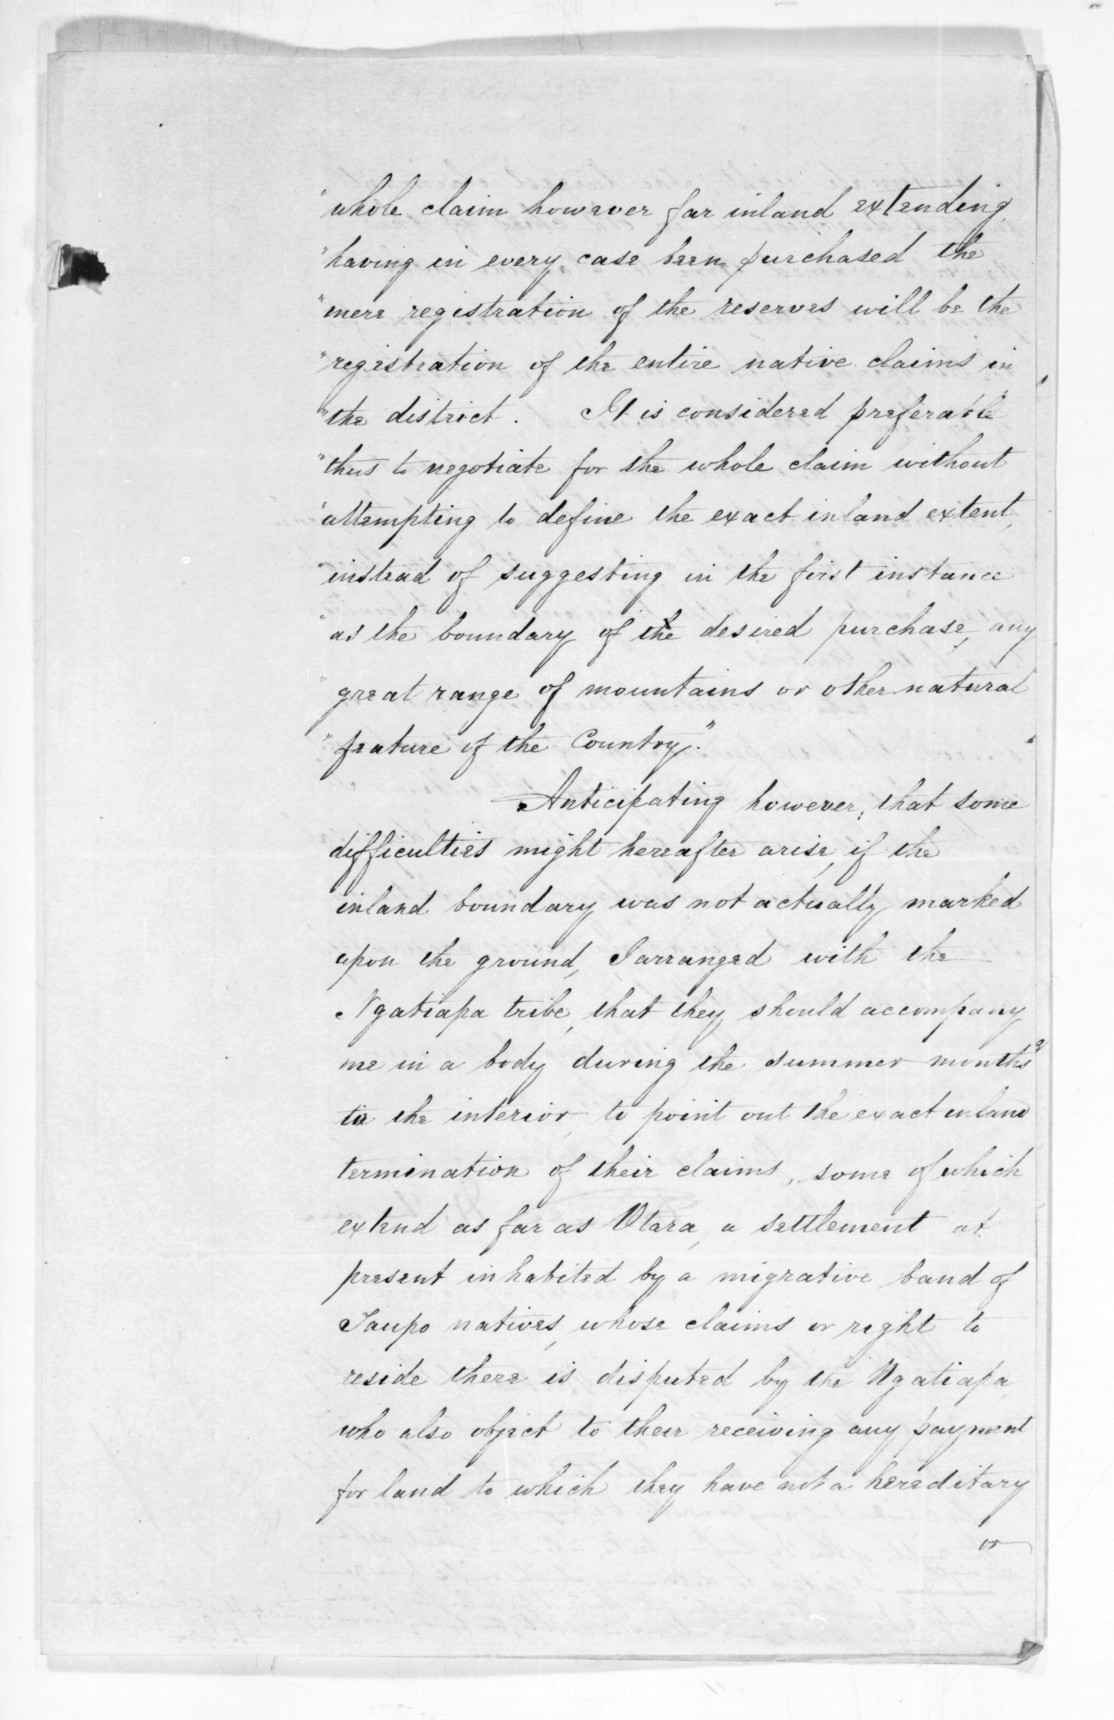 "whole claim however far inland extending,
"having in every case been purchased the
"mere registration of the reserves will be the
"registration of the entire native claims in
"the district. It is considered preferable
"thus to negotiate for the whole claim without
"attempting to define the exact inland extent,
"instead of suggesting in the first instance
"as the boundary of the desired purchase, any
"great range of mountains or other natural
"feature of the Country."
Anticipating however, that some
difficulties might hereafter arise, if the
inland boundary was not actually marked
upon the ground, I arranged with the
Ngatiapa tribe, that they should accompany
me in a body during the summer months
to the interior, to point out the exact inland
termination of their claims, some of which
extend as far as Otara, a settlement at
present inhabited by a migrative band of
Taupo natives, whose claims or right to
reside there is disputed by the Ngatiapa,
who also object to their receiving any payment
for land to which they have not a hereditary
or